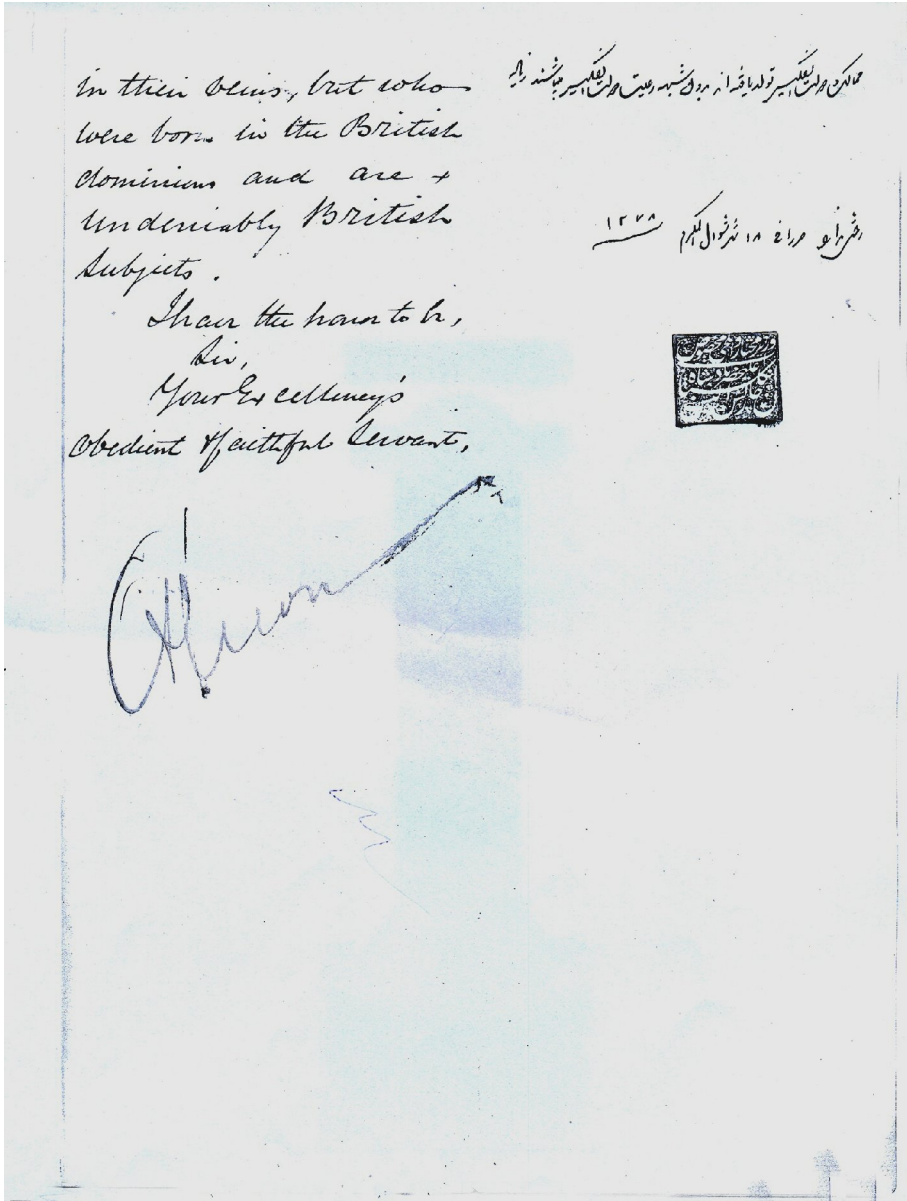 in their veins, but who
were born in the British
dominions and are +
undeniably British
Subjects.
I have the honor to be,
Sir,
Your Excellency's
obedient & faithful Servant,
ممالک دولت انگلیس تولد یافته اند بدون شبهه رعیت دولت انگلیس میباشند زیاده
۱۸ شهر شوال المکرم ۱۲۷۸